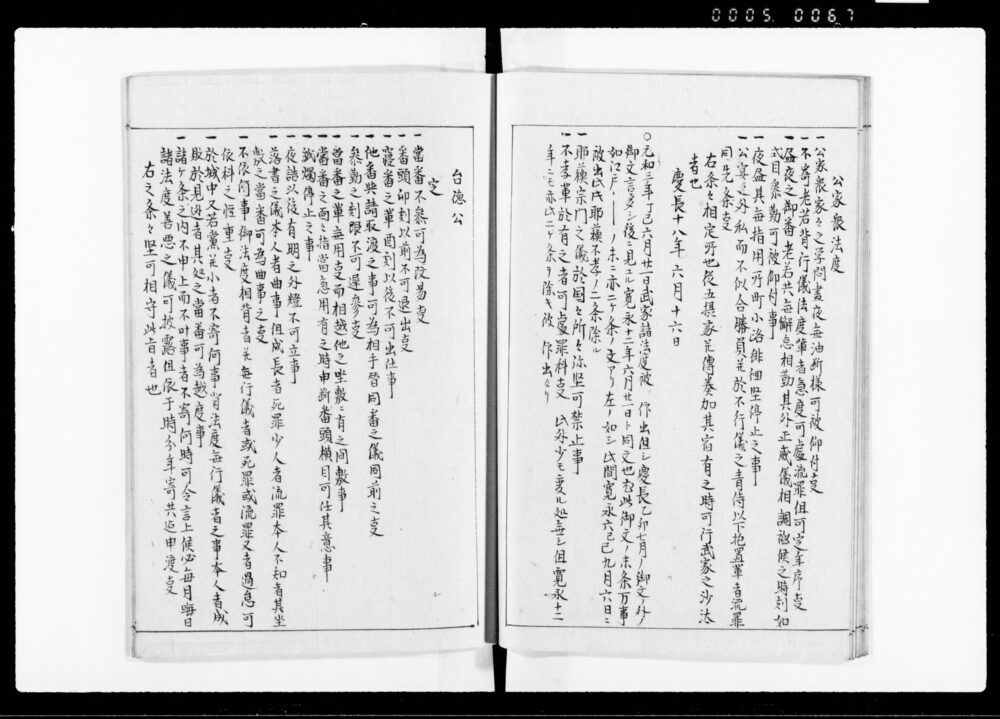 0005 0067
公家衆法度
一公家衆家々之学問昼夜無油断様可被仰付事
一不寄老若背行儀法度輩者急度可處流罪但可定年序事
一昼夜之御番老若共無懈怠相勤其外正威儀相調伺候之時刻如
式目参勤可被仰付事
一夜昼其無指用所町小路徘徊堅停止之事
一公宴之外私而不似合勝負并於不行儀之青侍以下抱置輩者流罪
同先条事
右条々相定所也従五摂家并傳奏加其宿有之時可行武家之沙汰
者也
慶長十八年六月十六日
〇元和三年丁巳六月廿一日武家諸法度被 作出但シ慶長乙卯七月ノ御文ノ外ノ
御文言多シ後ニ見エル寛永十二年六月廿一日ト同文也 此御文ノ末条万事
如江戸ノ末ニ亦二ケ条ノ文アリ左ノ如シ此間寛永六己巳九月六日ニ
被出此此耶蘇不孝ノ二条除ル
一耶蘇宗門之儀於国々所々弥堅可禁止事
一不孝輩於有之者可處罪科事 此外少モ変ル処無シ但寛永十二
年ニモ亦此二ケ条ヲ除キ被 作出タリ
台徳公
定
一當番不参可為改易事
一番頭卯刻以前不可退出事
一寝番之輩酉刻以後不可出仕事
一他番與請取渡之事可為相手晉同番之儀同前之事
一参勤之刻限不可遅参事
一當番之輩無用事而相越他之座敷ニ有之間敷事
一當番之面々指當急用有之時申断番頭横目可任其意事
一紙燭停止之事
一夜詰以後有明之外燈不可立事
一落書之儀本人者曲事但成長者死罪少人者流罪本人不知者其坐
敷之當番可為曲事之事
一不依何事御法度相背者并無行儀者或死罪或流罪又者過怠可
依科之恒重事
一於城中又若黨并小者不寄何事背法度無行儀者之事本人者成
敗於見迯者其処之當番可為越度事
一諸ケ条之内不申上而不叶事者不寄何時可令言上候必毎月晦日
諸法度善悪之儀可披露但依于時分年寄共迄申渡事
右之条々堅可相守此旨者也